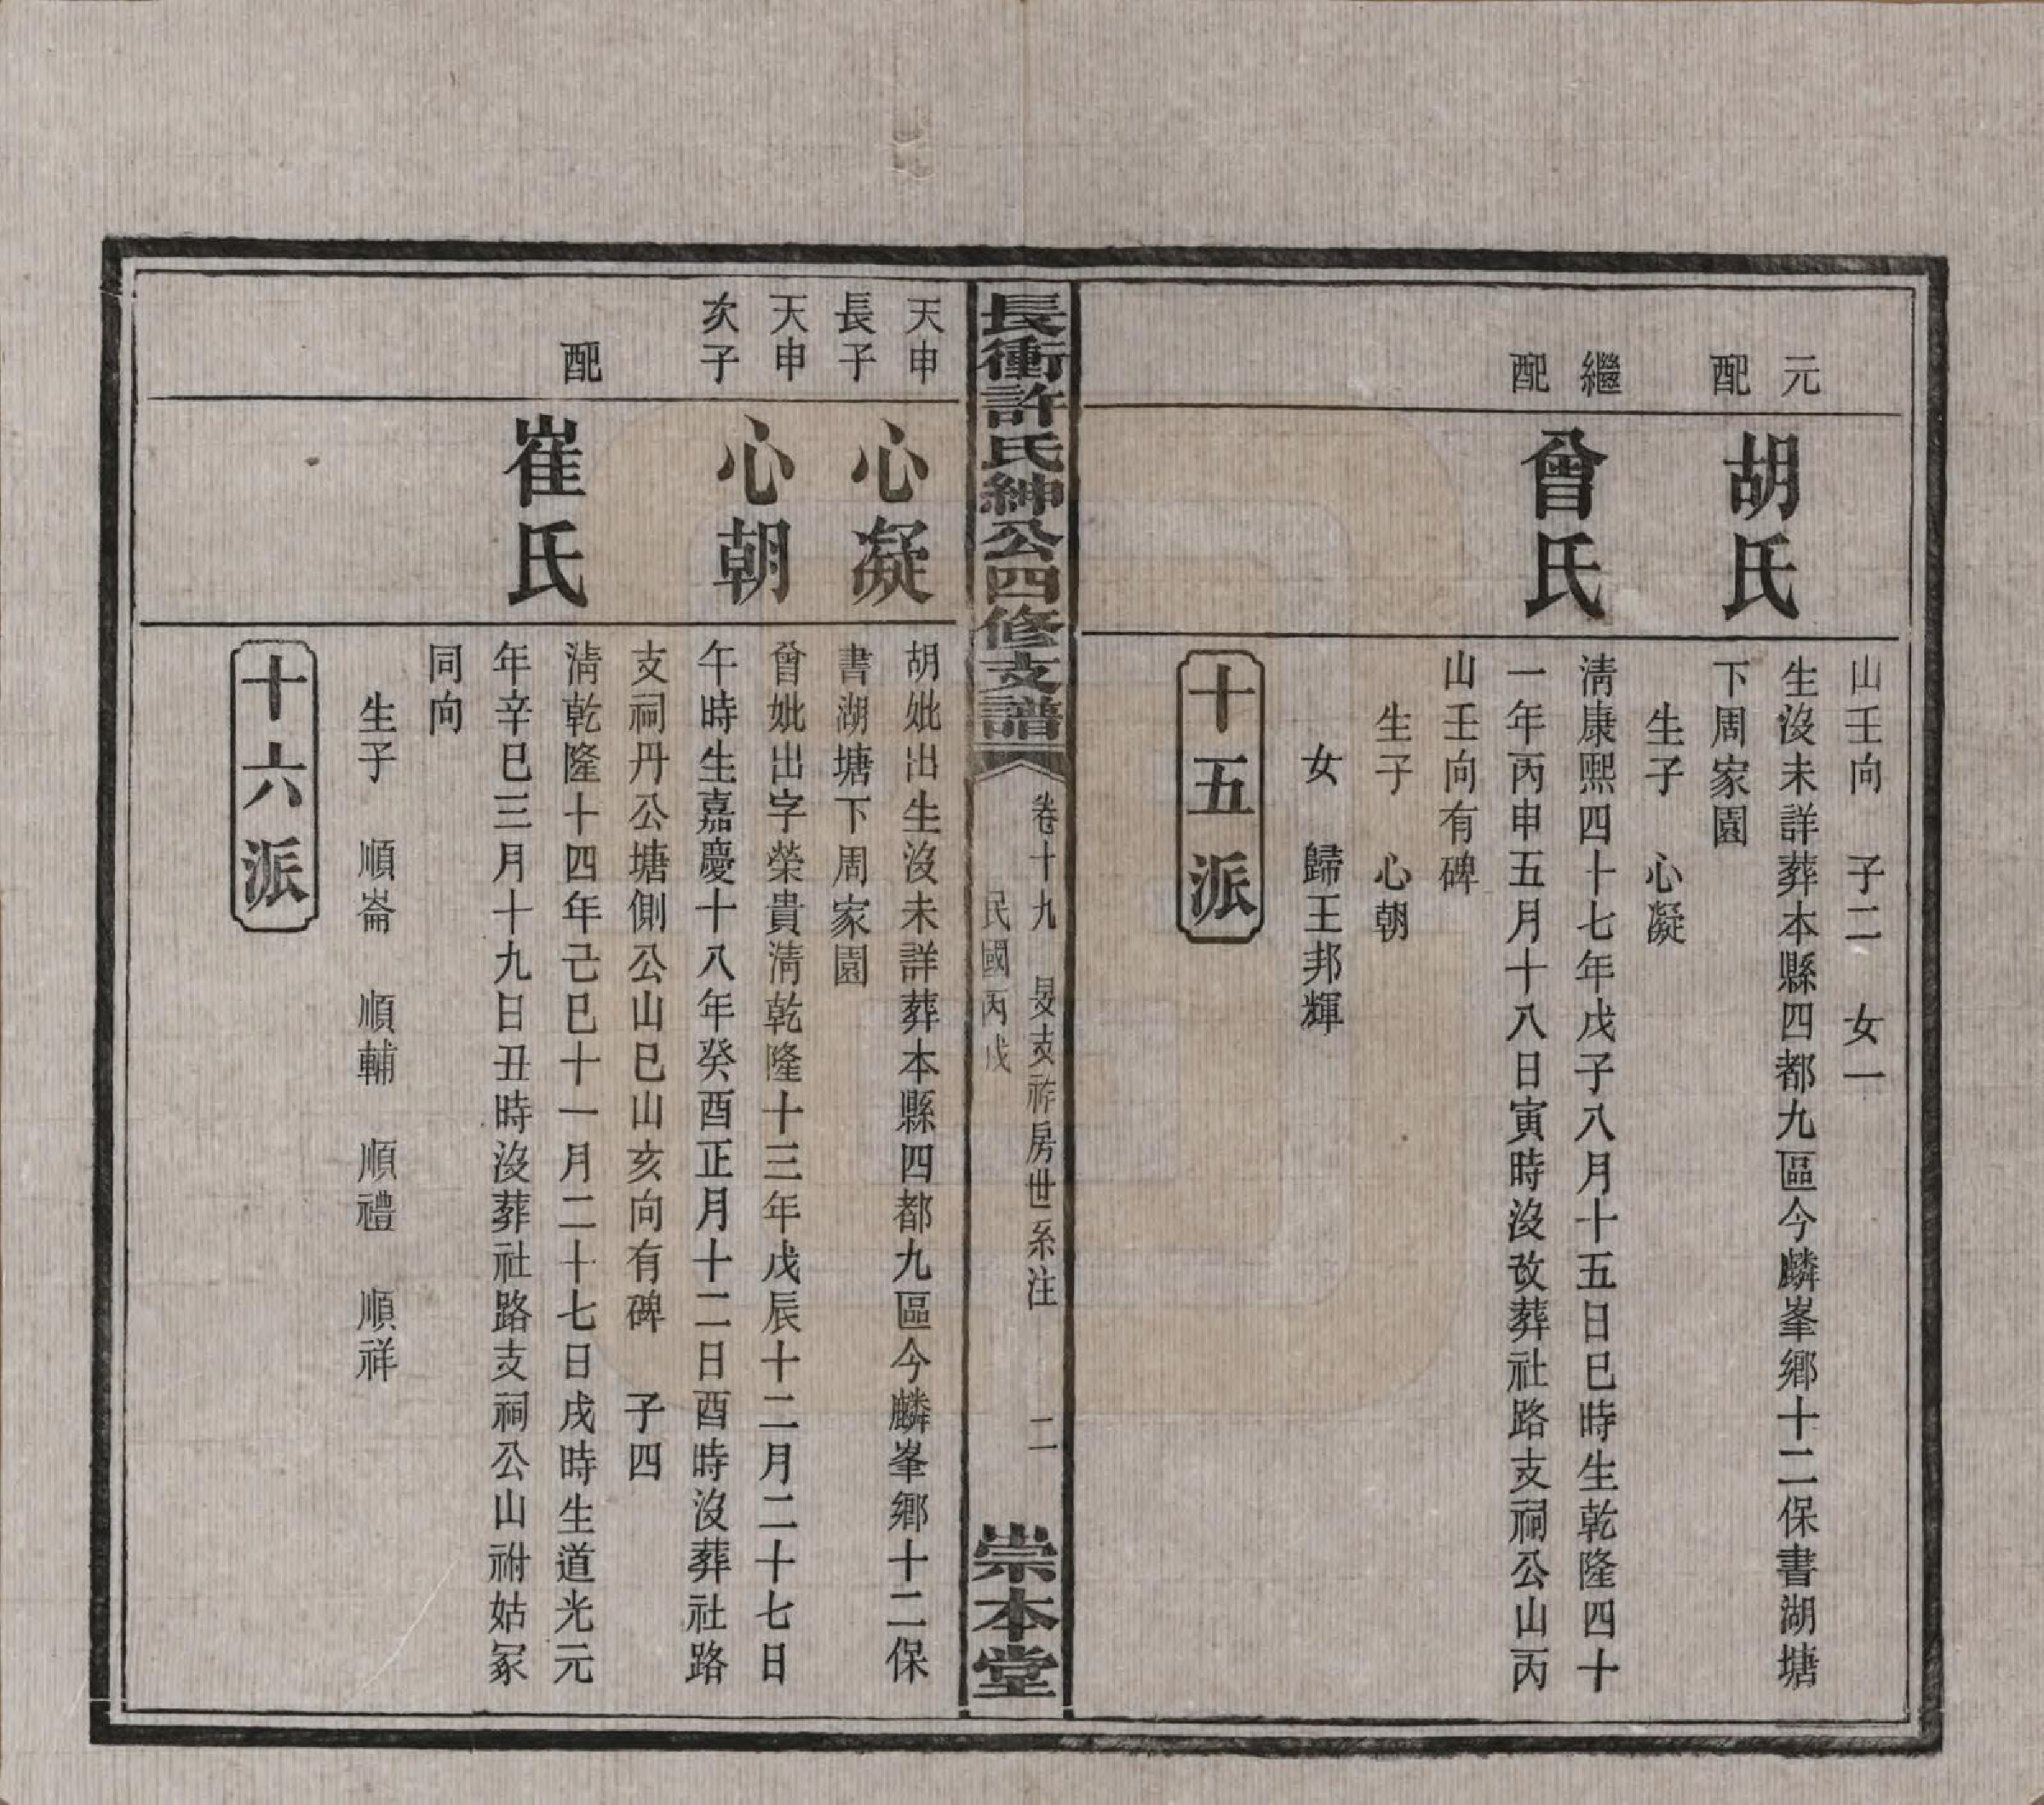 山壬向　子二　女一
元配
胡氏
生沒未詳葬本縣四都九區今麟峯鄉十二保書湖塘
下周家園
生子　心凝
繼配
曾氏
清康熙四十七年戊子八月十五日巳時生乾隆四十
一年丙申五月十八日寅時沒改葬社路支祠公山丙
山壬向有碑
生子　心朝
女　歸王邦輝
十五派
長衝許氏紳公四修支譜
卷十九　旻支祚房世系注　二
民國丙戌
崇本堂
天申長子
心凝
胡妣出生沒未詳葬本縣四都九區今麟峯鄉十二保
書湖塘下周家園
天申次子
心朝
曾妣出字榮貴清乾隆十三年戊辰十二月二十七日
午時生嘉慶十八年癸酉正月十二日酉時沒葬社路
支祠丹公塘側公山巳山亥向有碑　子四
配
崔氏
清乾隆十四年己巳十一月二十七日戌時生道光元
年辛巳三月十九日丑時沒葬社路支祠公山祔姑冢
同向
生子　順崙　順輔　順禮　順祥
十六派